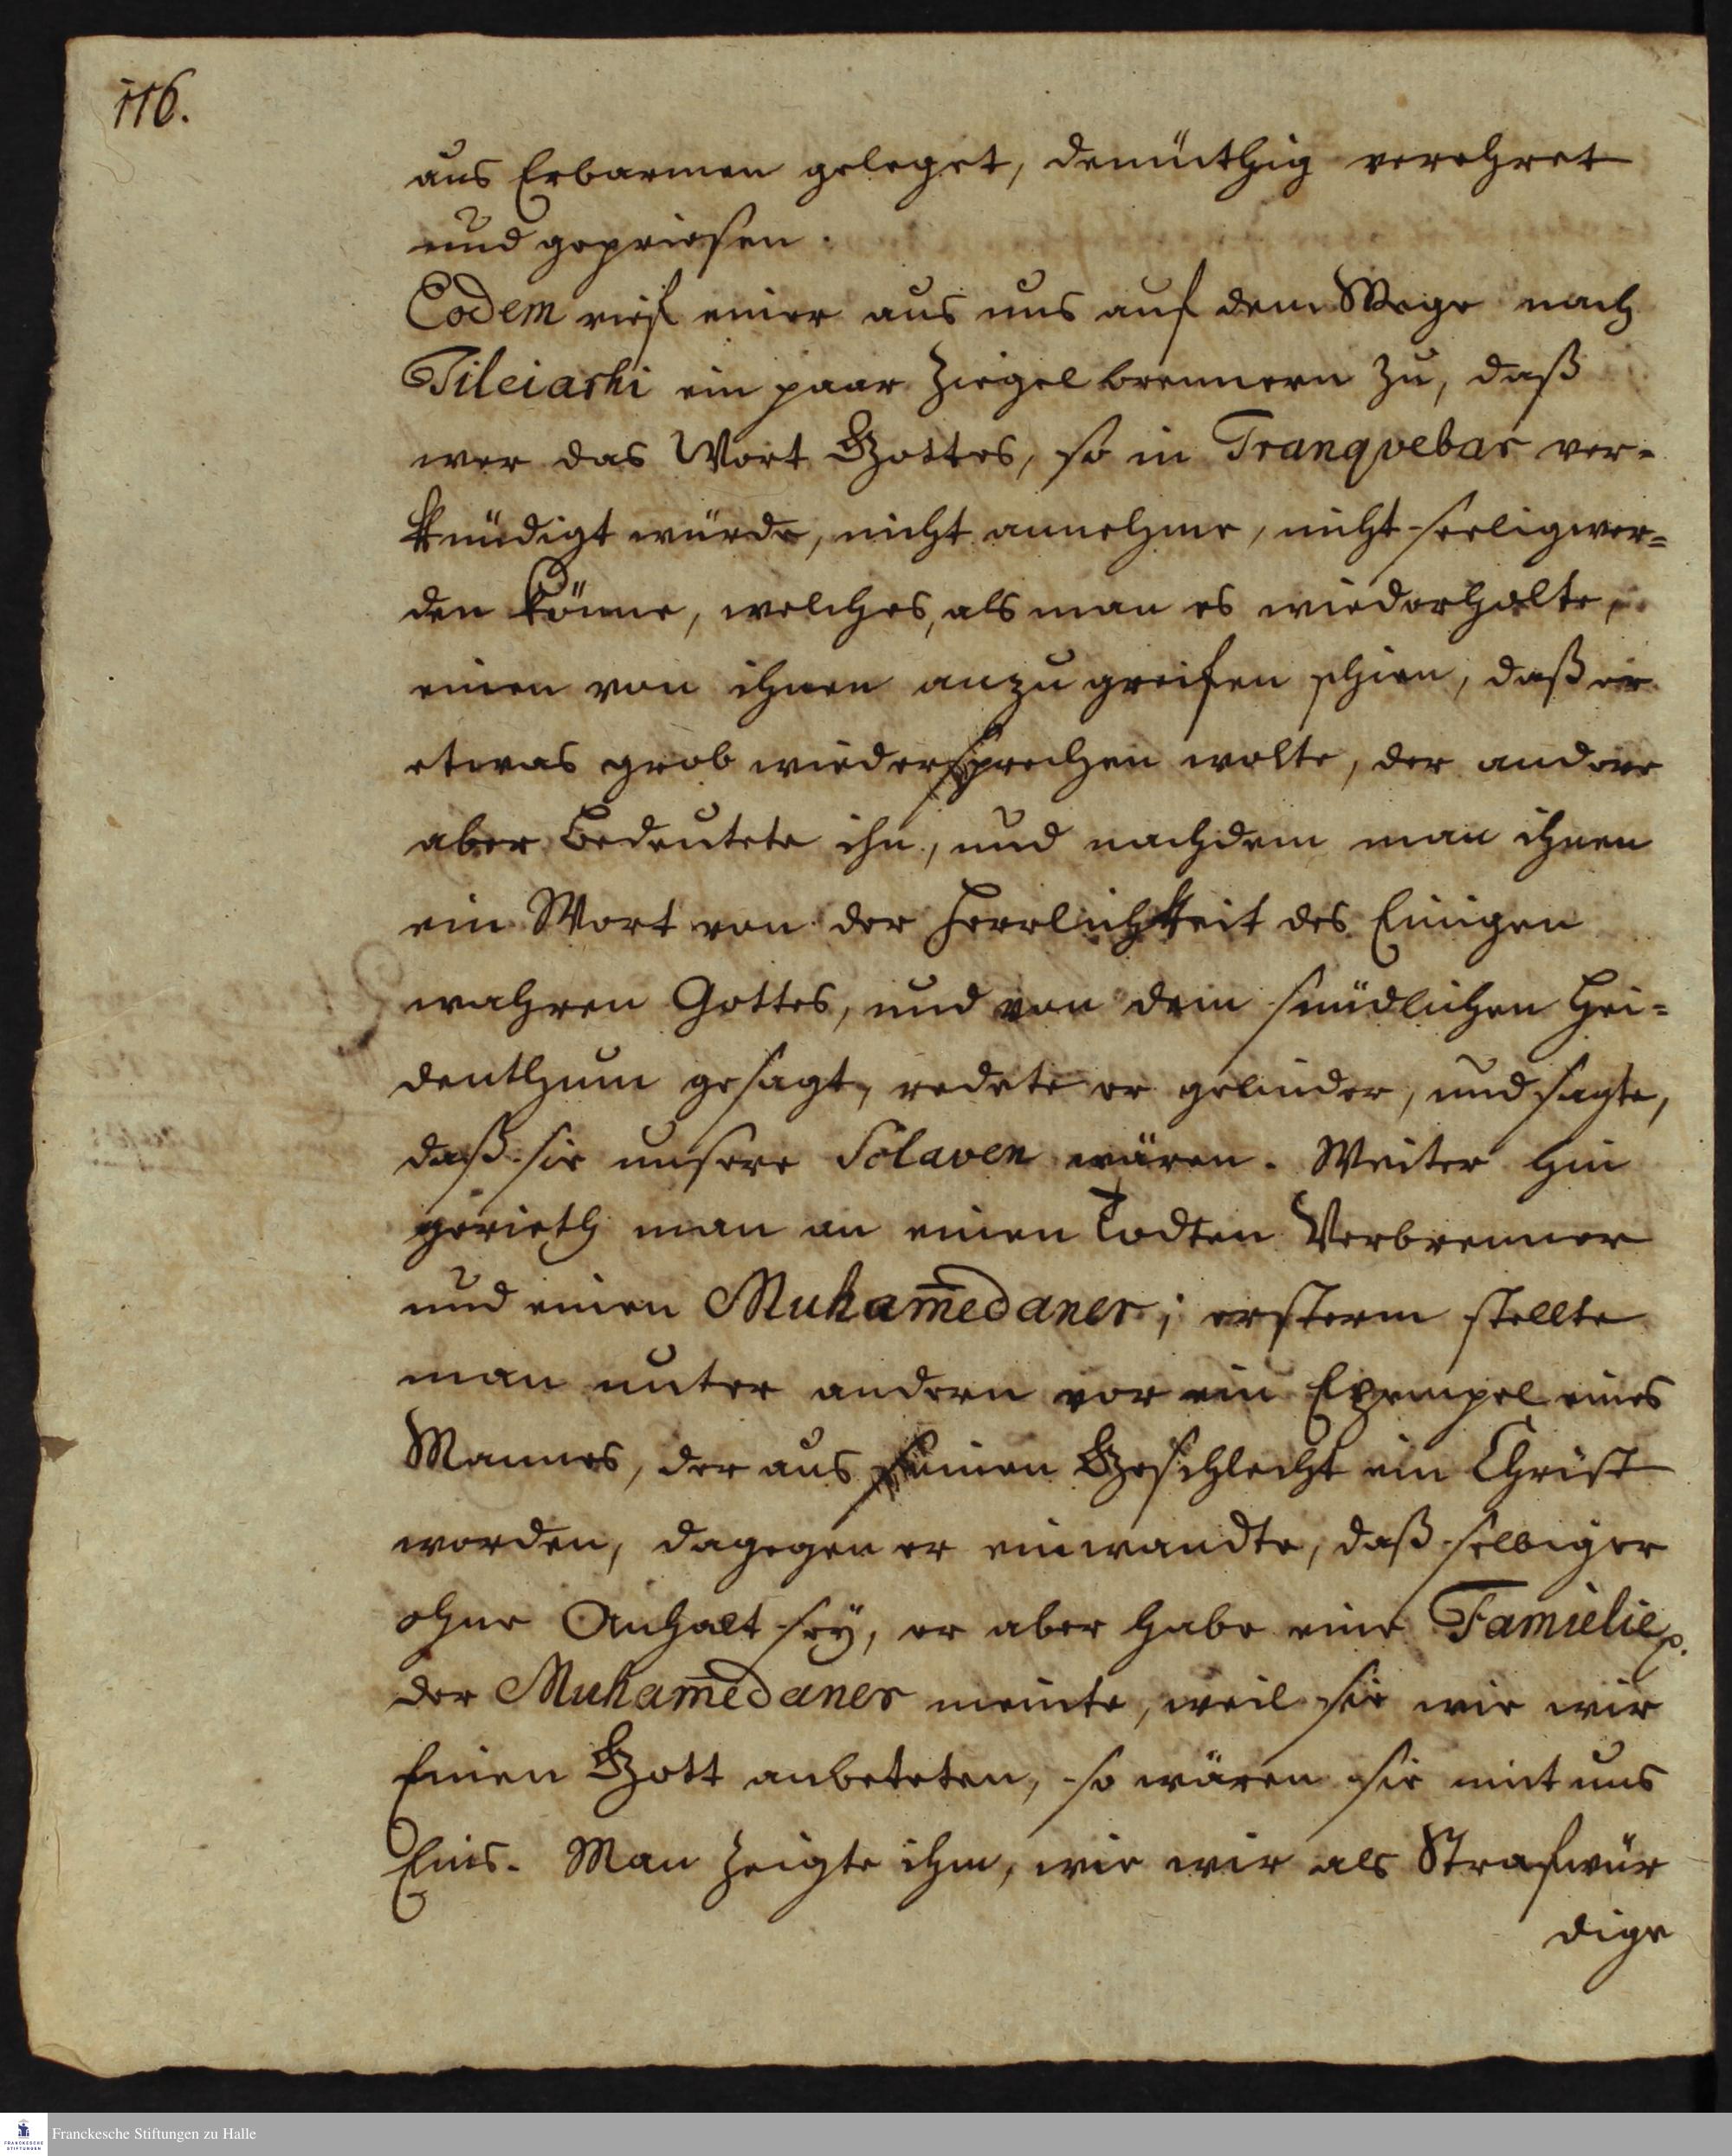 116.
aus Erbarmen geleget, demüthig verehret
und gepriesen.
Eodem rief einer aus uns auf dem Wege nach
Tileiarhi ein paar Ziegelbrennern zu, daß
wer das Wort Gottes, so in Tranqvebar ver-
kündigt würde, nicht annehme, nicht seelig wer-
den könne, welches, als man es wiederholte,
einen von ihnen anzugreifen schien, daß er
etwas grob wiedersprechen wolte, der andere
aber bedeutete ihn, und nachdem man ihnen
ein Wort von der Herrlichkeit des Einigen
wahren Gottes, und von dem sündlichen Hei-
denthum gesagt, redete er gelinder, und sagte,
daß sie unsere Sclaven wären. Weiter hin
gerieth man an einen Todten Verbrenner
und einen Muham̄edaner; ersterm stellte
man unter andern vor ein Exempel eines
Mannes, der aus seinen Geschlecht ein Christ
worden, dagegen er einwandte, daß selbiger
ohne Anhalt sey, er aber habe eine Famielie p.
der Muham̄edaner meinte, weil sie wie wir
Einen Gott anbeteten, so wären sie mit uns
Eins. Man zeigte ihm, wie wir als Strafwür
dige
FRANCKESCHE STIFTUNGEN
Franckesche Stiftungen zu Halle